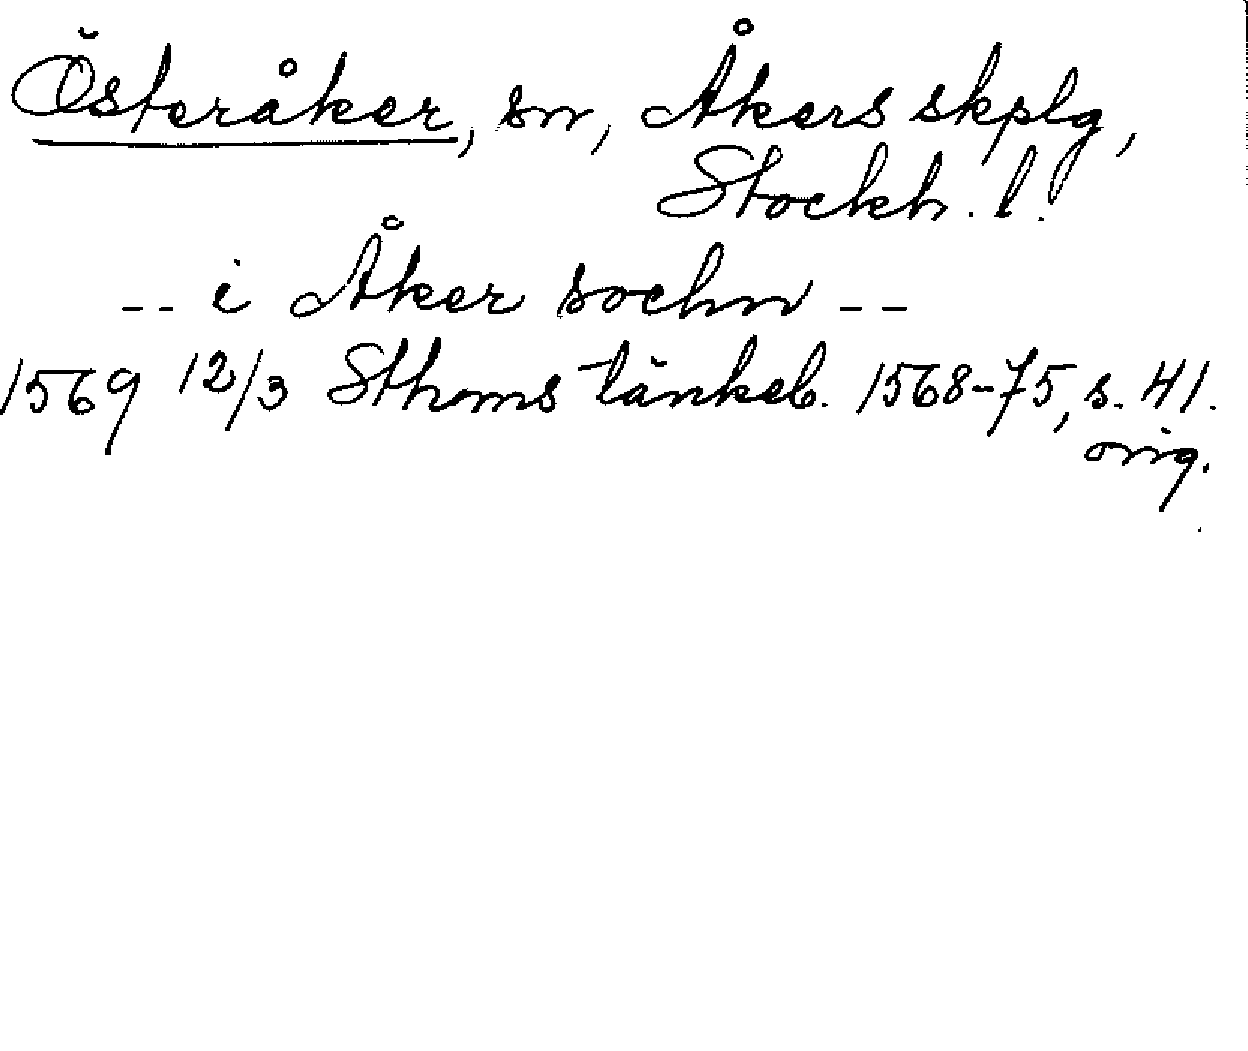 Österåker, sn, Åkers skplg,
Stockh. l.
-- i Åker sochn --
1569 12/3 Sthoms tänkeb. 1568-75, s. 41.
orig.